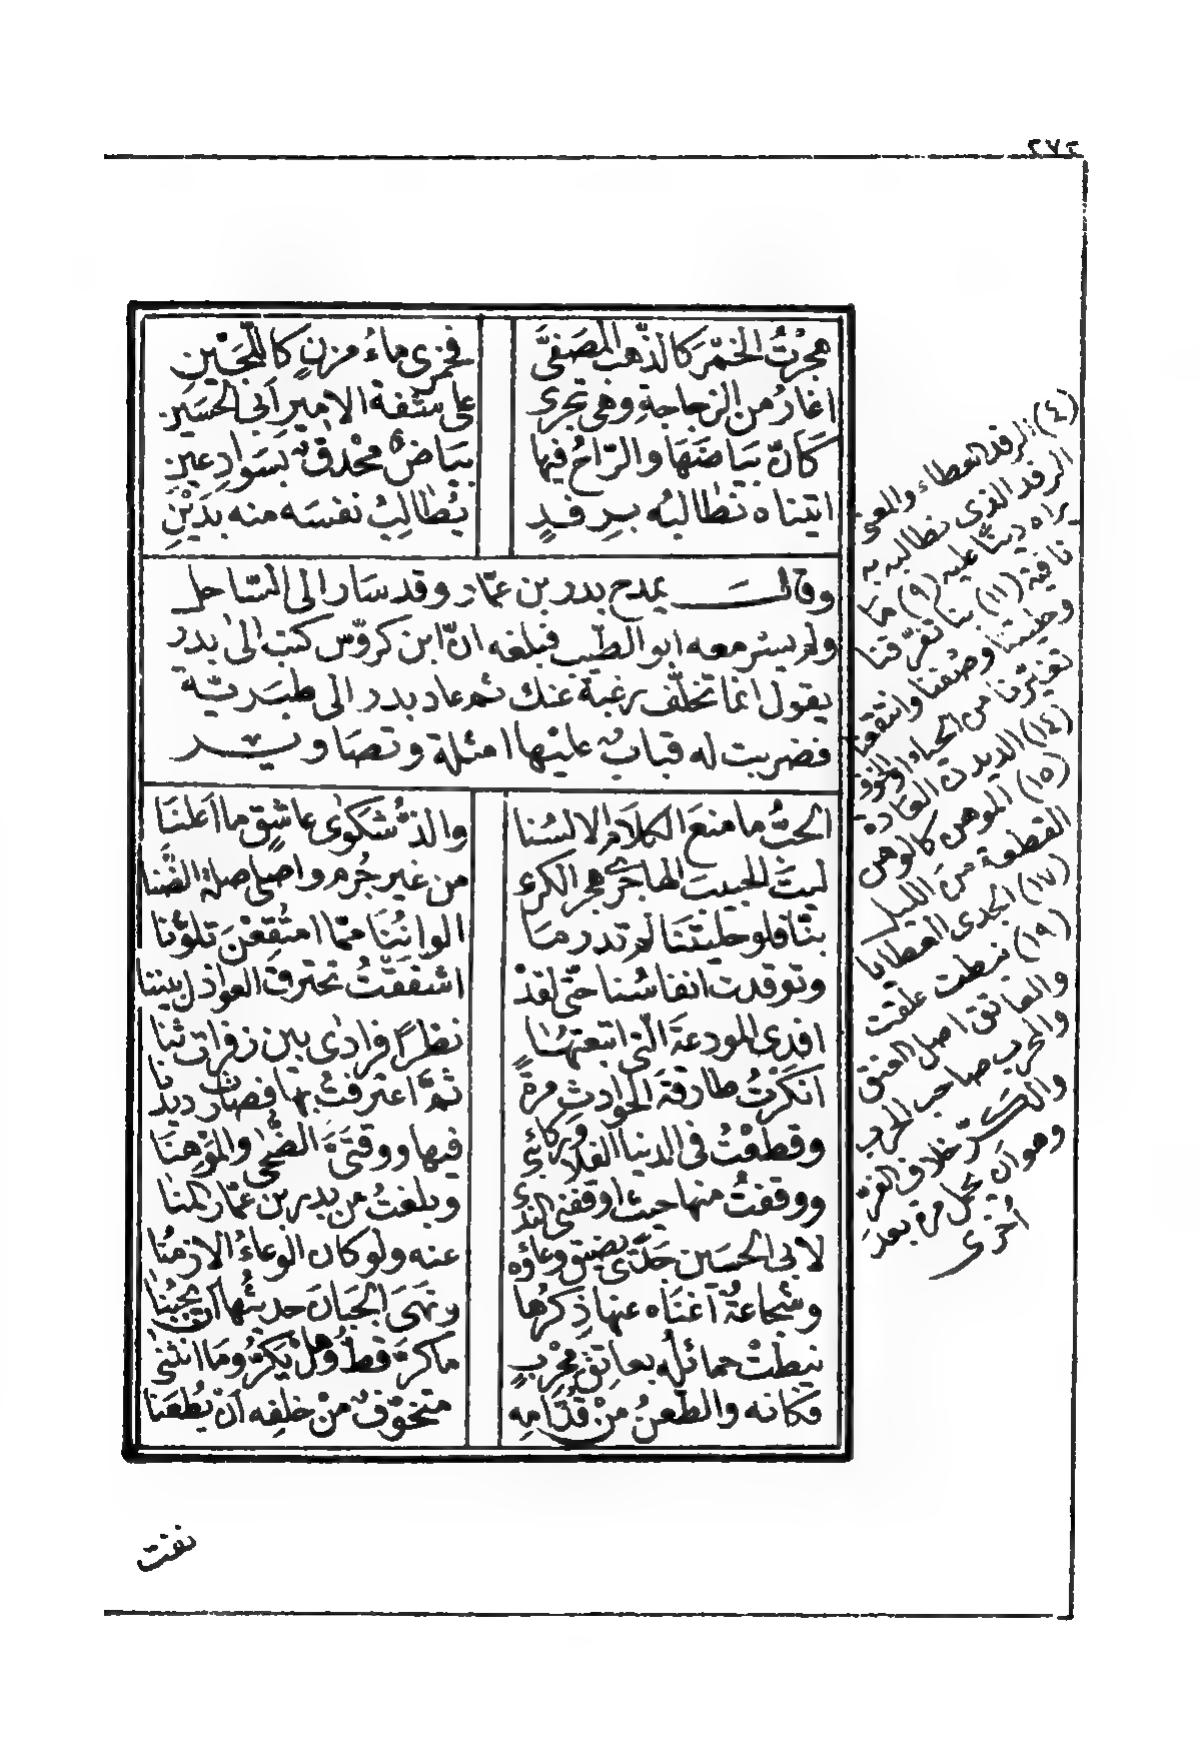 ٢٧٤
هجرتُ الخمرَ كالذهب المصَفَّى فخمري ماءُ مزنٍ كاللُّجَيْنِ
اغارُ من الزجاجةِ وهى تجرى على شفة الامير ابى الحسَين
كَأنّ بيَاضَهَا والرّاحُ فيها بيَاضٌ محْدقٌ بسَوادِ عين
اتيناه نطالبُه بِرِفدٍ يُطالِبُ نفسَه منه بدَيْنِ
وقالــ يمدح بدر بن عمّار وقد سَار الى السّاحل
ولم يسر معه ابو الطّيب فبلغه انّ ابن كروّس كتب الى بدر
يقول انما تخلّف رغبة عنك ثم عاد بدر الى طبَريّة
فضربت له قبابٌ عليْها امثلة وتصَاوير
الحبُّ ما منعَ الكلامَ الالسُنا والذُّ شكوى عاشِقٍ ما اَعلنَا
ليتَ الحبيبَ الهاجرى هجرَ الكرى من غير جُرم واصِلى صلةَ الضَّنا
بنّا فلو حليتَنَا لم تدر مَا الوانُنَا ممّا امتُقِعْنَ تلوّنا
وتوقدت انفاسُنا حتّى لقدْ اشفقتُ تحترق العواذل بيننا
افدى المودعَةَ الّتى اتبعتهَا نظرًا فرادى بين زفراتٍ ثنا
انكرْتُ طارقةَ الحوادثِ مرةً ثمّ اعترفتُ بها فصارت ديدنا
وقطعْتُ فى الدنيا الفلا وركائبى فيها ووقتَىَّ الضُّحى والمَوْهِنَا
ووقفتُ منها حيث اوقفنى الندى وبلغتُ من بدر بن عمّار المنا
لابى الحسَين جَدًى يضيق وعاؤه عنه ولو كان الوعاءُ الازمُنا
وشجاعةٌ اَغنَاه عنها ذِكرُها ونهَى الجَبَانَ حديثُها اَن يجبُنا
نيطَتْ حمائلُه بعاتِقِ مِحْرَبٍ ماكرَّ قطُّ وهل يكرُّ ومَا انثنى
فكانه والطّعنُ منْ قُدَّامِه متخوّفٌ منْ خلفِه اَنْ يُطعَنا
(٤) الرفد العطاء والمعنى
الرفد الذى نطالبه به
يراه دينًا عليه (٩) ما
نافية (١١) بنا تفرّقنا
وحليتنا وصفتنا وامتقعن
تغيّرنا من الحياء او الخوف
(١٤) الديدن العادة
(١٥) الموهن كالوهن
القطعة من الليل
(١٧) الجدى العطايا
(١٩) نيطت علقت
والعاتق اصل العنق
والمحرب صاحب الحرب
والكرّ خلاف الفرّ
وهو ان يحمل مرة بعد
اخرى
نفت